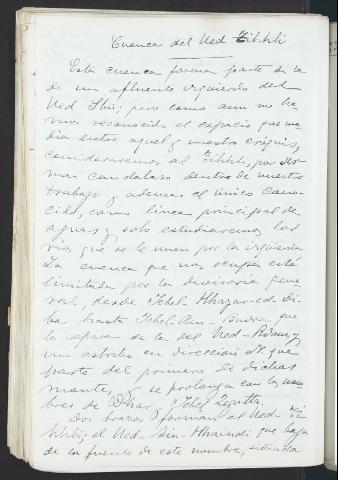 Cuenca del Ued Zihhli
Esta cuenca forma parte de la
de un afluente izquierdo del
Ued Ibir; pero como aun no he-
mos reconocido el espacio que me-
dia entre aquel y nuestro croquis,
consideraremos al Zihhli, por ser
mas caudaloso dentro de nuestro
trabajo y ademas el único cono-
cido, como línea principal de
aguas y solo estudiaremos los
ríos que se le unen por la izquierda
La cuenca que nos ocupa está
limitada por la divisoria gene-
ral, desde Yebel-Hhazar-ed-di-
ba hasta Yebel-Ain- que
la separa de la del Ued- y
un estribo en dirección N. que
parte del primero de dichos
montes, y se prolonga con los nom-
bres de Dhar, Yebel Zegotta.
Dos brazos forman al Ued-Zi-
hhli; el Ued-Ain- que baja
de la fuente de este nombre, situada